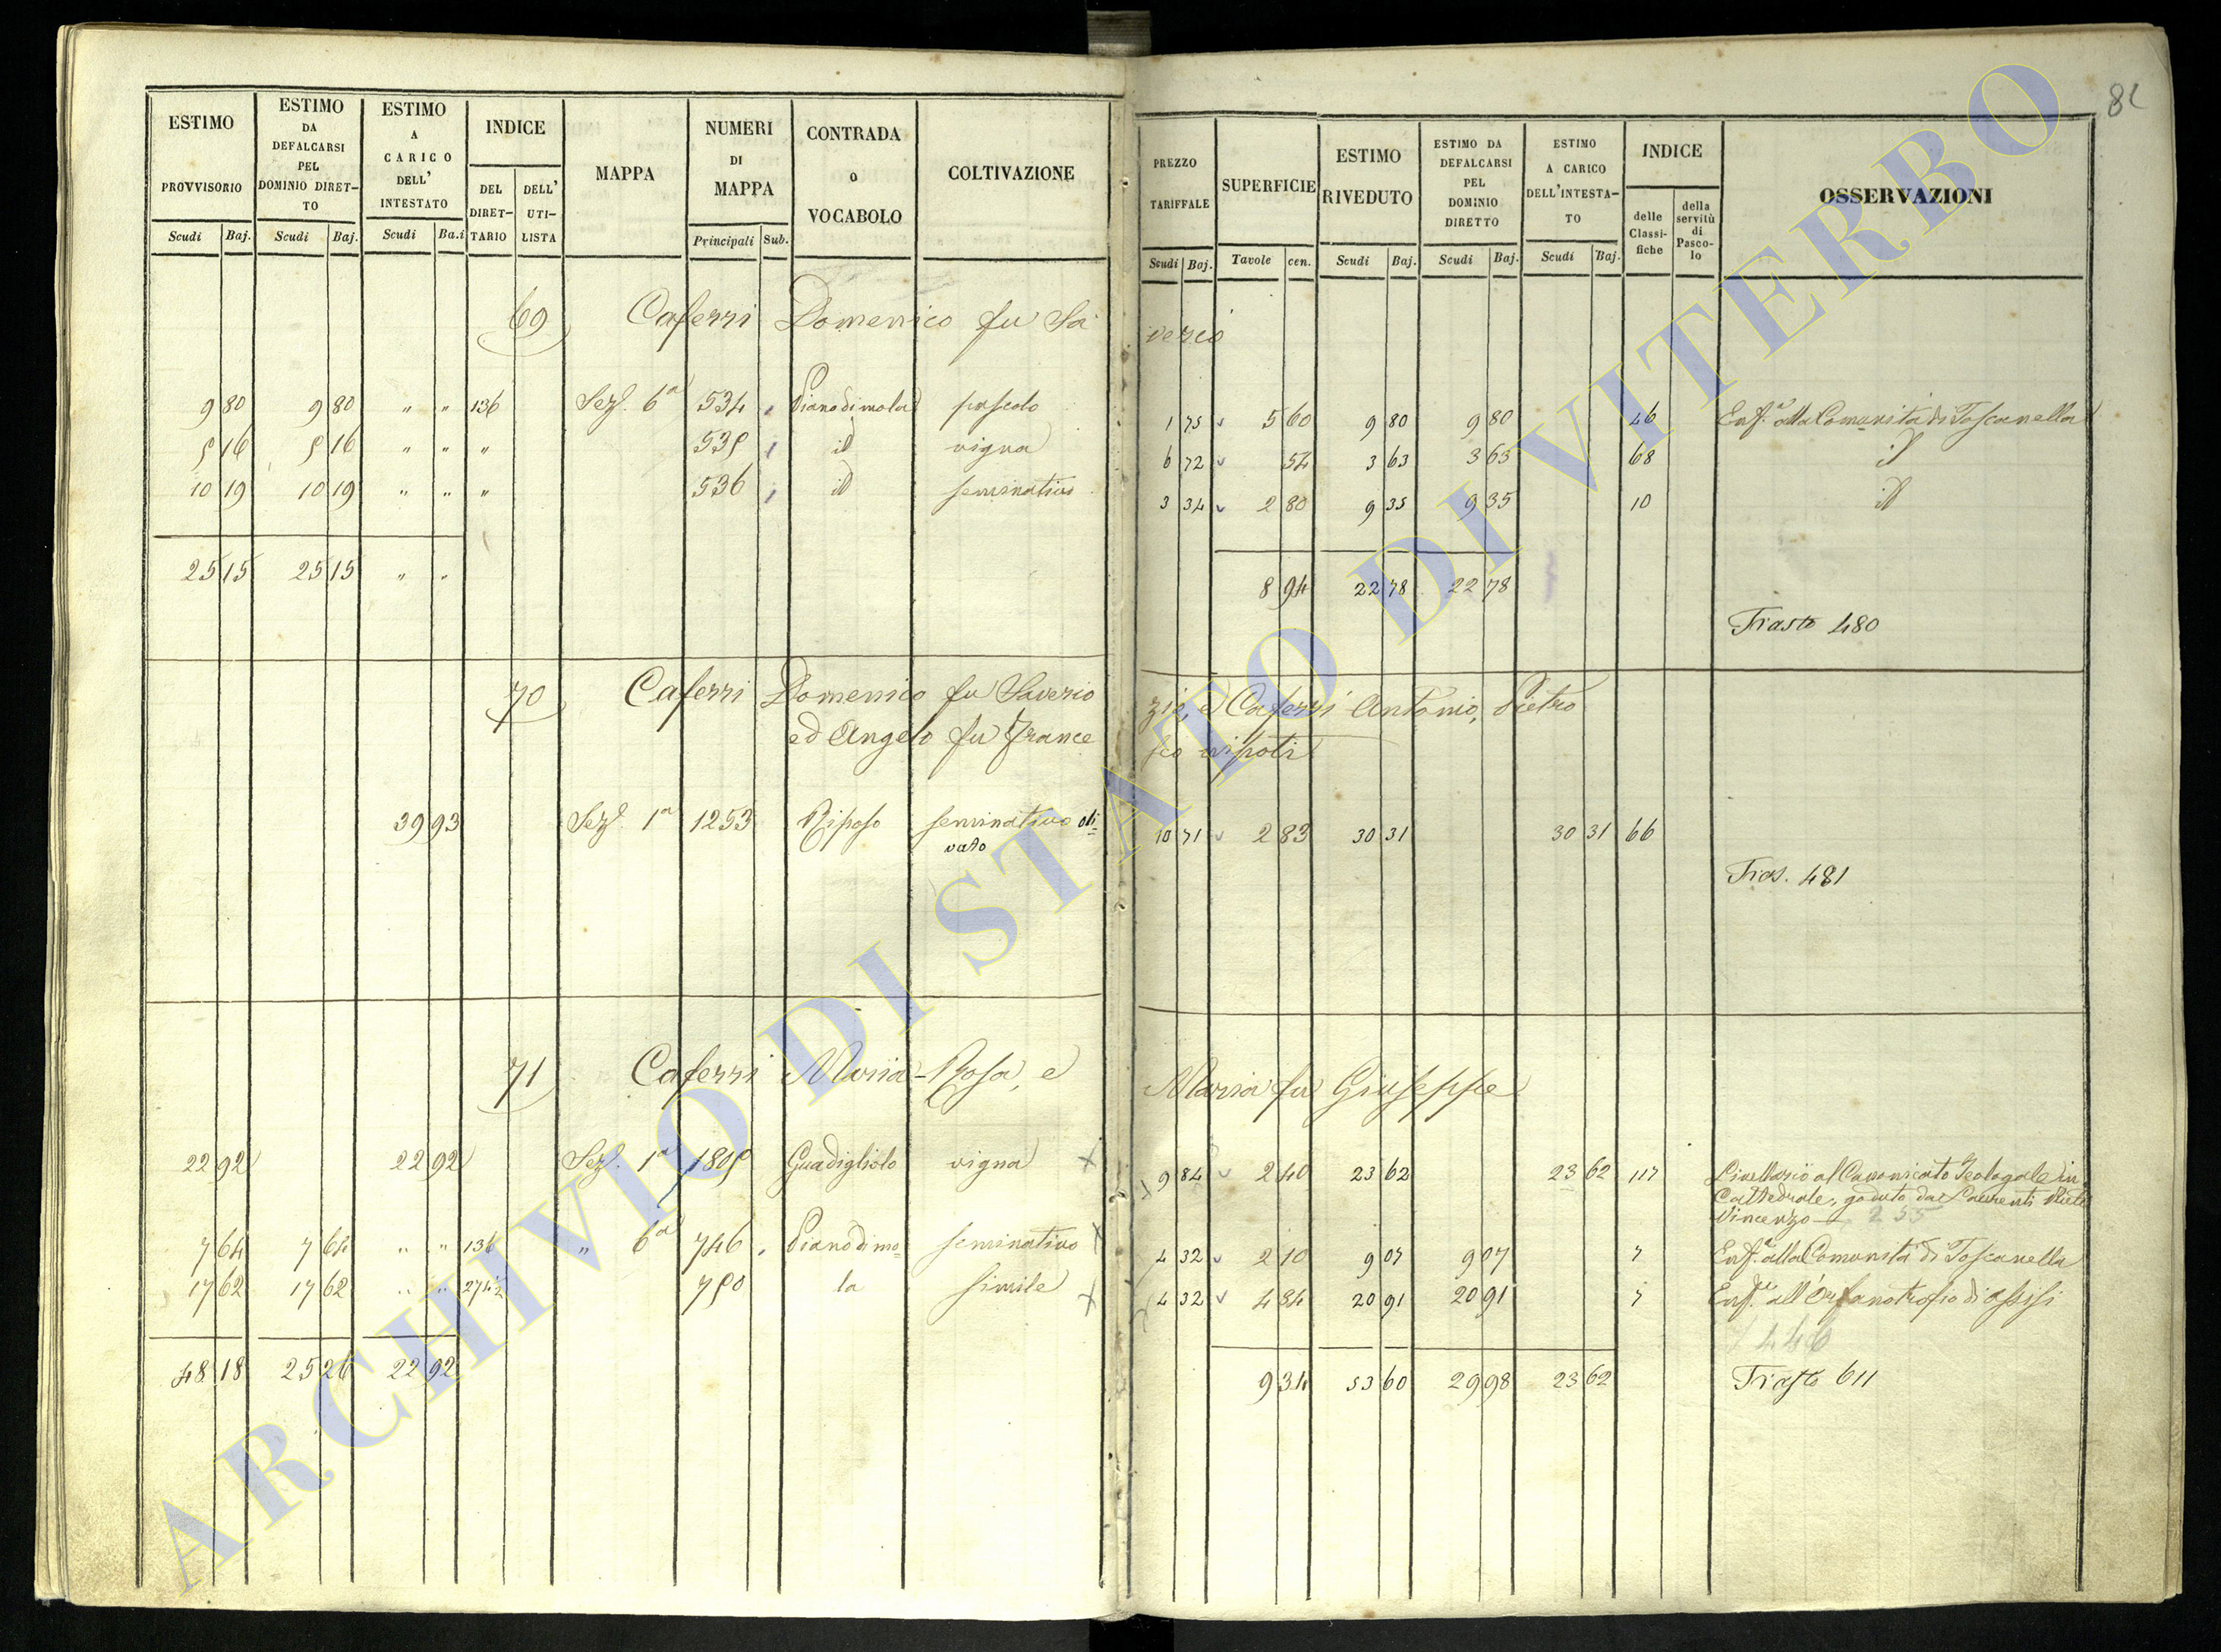 82
ESTIMO PROVVISORIO | ESTIMO DA DEFALCARSI PEL DOMINIO DIRET-TO | ESTIMO A CARICO DELL' INTESTATO | INDICE | MAPPA | NUMERI DI MAPPA | CONTRADA O VOCABOLO | COLTIVAZIONE
DEL DIRET-TARIO | DELL' UTI-LISTA
Scudi | Baj. | Scudi | Baj. | Scudi | Ba.i | Principali | Sub.
PREZZO TARIFFALE | SUPERFICIE | ESTIMO RIVEDUTO | ESTIMO DA DEFALCARSI PEL DOMINIO DIRETTO | ESTIMO A CARICO DELL'INTESTA-TO | INDICE | OSSERVAZIONI
delle Classi-fiche | della servitù di Pasco-lo
Scudi | Baj. | Tavole | cen. | Scudi | Baj. | Scudi | Baj. | Scudi | Baj.
69 Caferri Domenico fu Sa
verio
9 80 | 9 80 | " " | 136 | Sez. 6a | 534 | Piano di mola | pascolo | 1 75 | 5 60 | 9 80 | 9 80 | 46 | Enf. alla Comunità di Toscanella
5 16 | 5 16 | " " | " | 535 | id | vigna | 6 72 | 54 | 3 63 | 3 63 | 68 | id
10 19 | 10 19 | " " | " | 536 | id | seminativo | 3 34 | 2 80 | 9 35 | 9 35 | 10 | id
25 15 | 25 15 | " " | 8 94 | 22 78 | 22 78
Trasto 480
70 Caferri Domenico fu Saverio
zio, e Caferri Antonio, Pietro
ed Angelo fu France
sco nipoti
39 93 | Sez. 1a | 1253 | Riposo | seminativo oli=
vato
10 71 | 2 83 | 30 31 | 30 31 | 66
Tras. 481
71 Caferri Maria-Rosa, e
Maria fu Giuseppe
22 92 | 22 92 | Sez. 1a | 1805 | Guadigliolo | vigna | 9 84 | 2 40 | 23 62 | 23 62 | 117 | Livellario al Canonicato Teologale in
Cattedrale, goduto da Laurenti
Vincenzo 255
7 64 | 7 64 | " " | 136 | " 6a | 746 | Piano di mo= | seminativo | 4 32 | 2 10 | 9 07 | 9 07 | 7 | Enf. alla Comunità di Toscanella
17 62 | 17 62 | " " | 750 | la | simile | 4 32 | 4 84 | 20 91 | 20 91 | 7 | Enf. all'Orfanotrofio di Assisi
446
48 18 | 25 26 | 22 92 | 9 34 | 53 60 | 29 98 | 23 62 | Trasto 611
ARCHIVIO DI STATO DI VITERBO